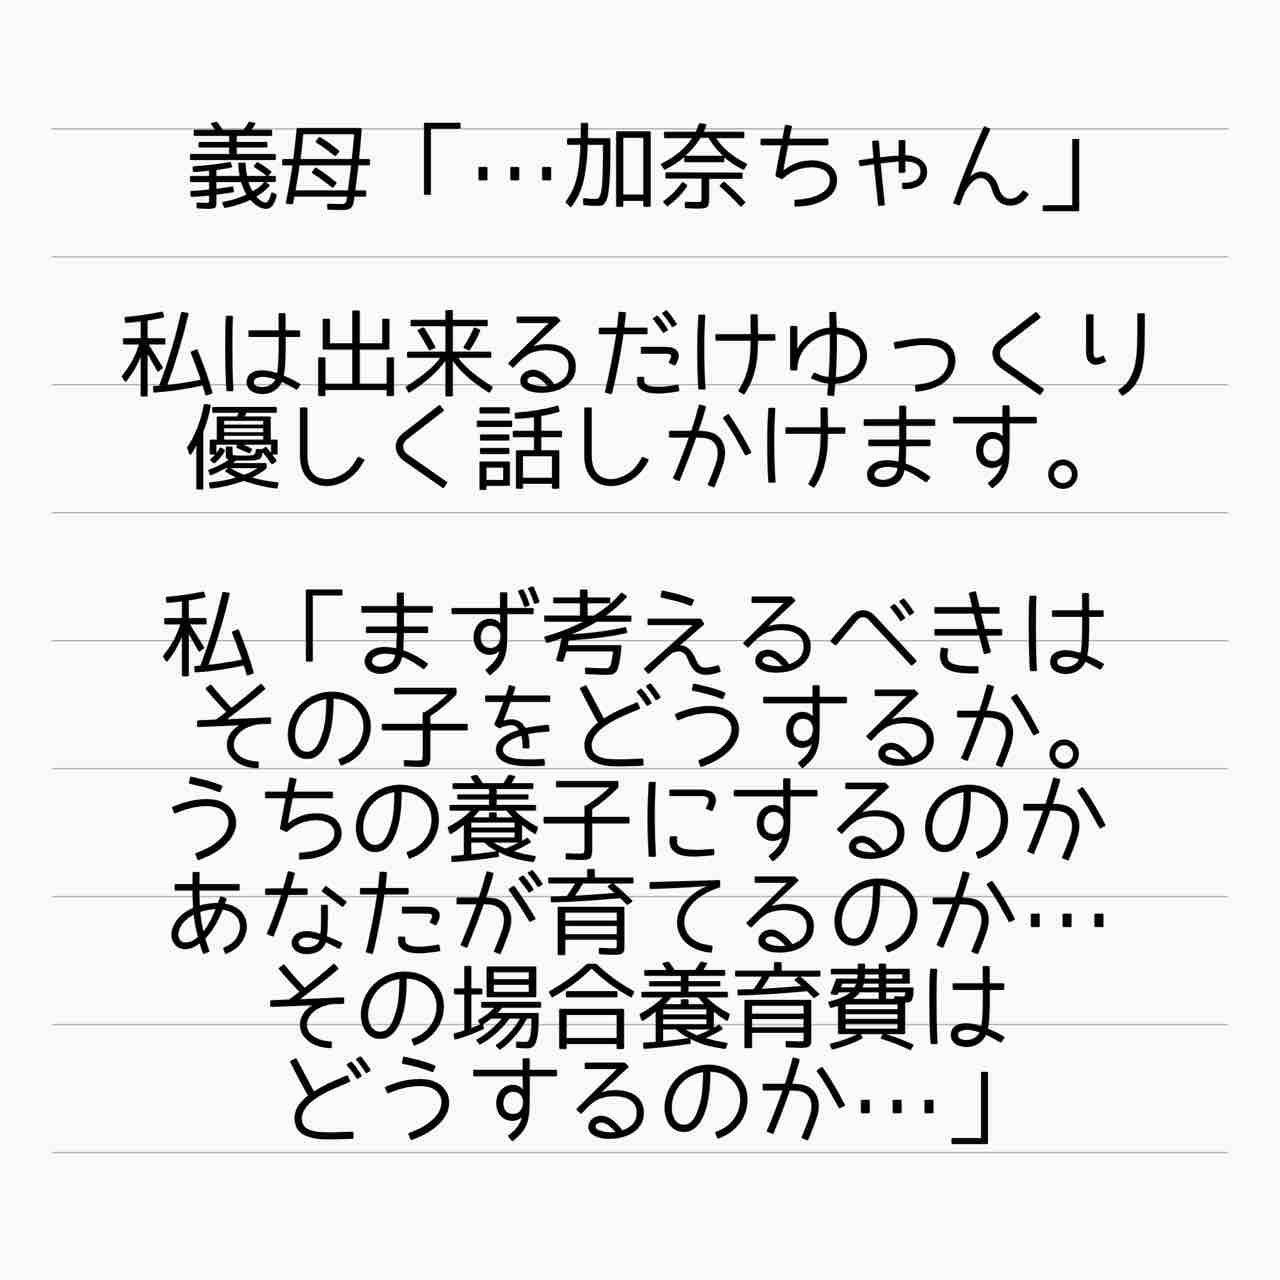 義母「…加奈ちゃん」
私は出来るだけゆっくり
優しく話しかけます。
私「まず考えるべきは
その子をどうするか。
うちの養子にするのか
あなたが育てるのか…
その場合養育費は
どうするのか…」